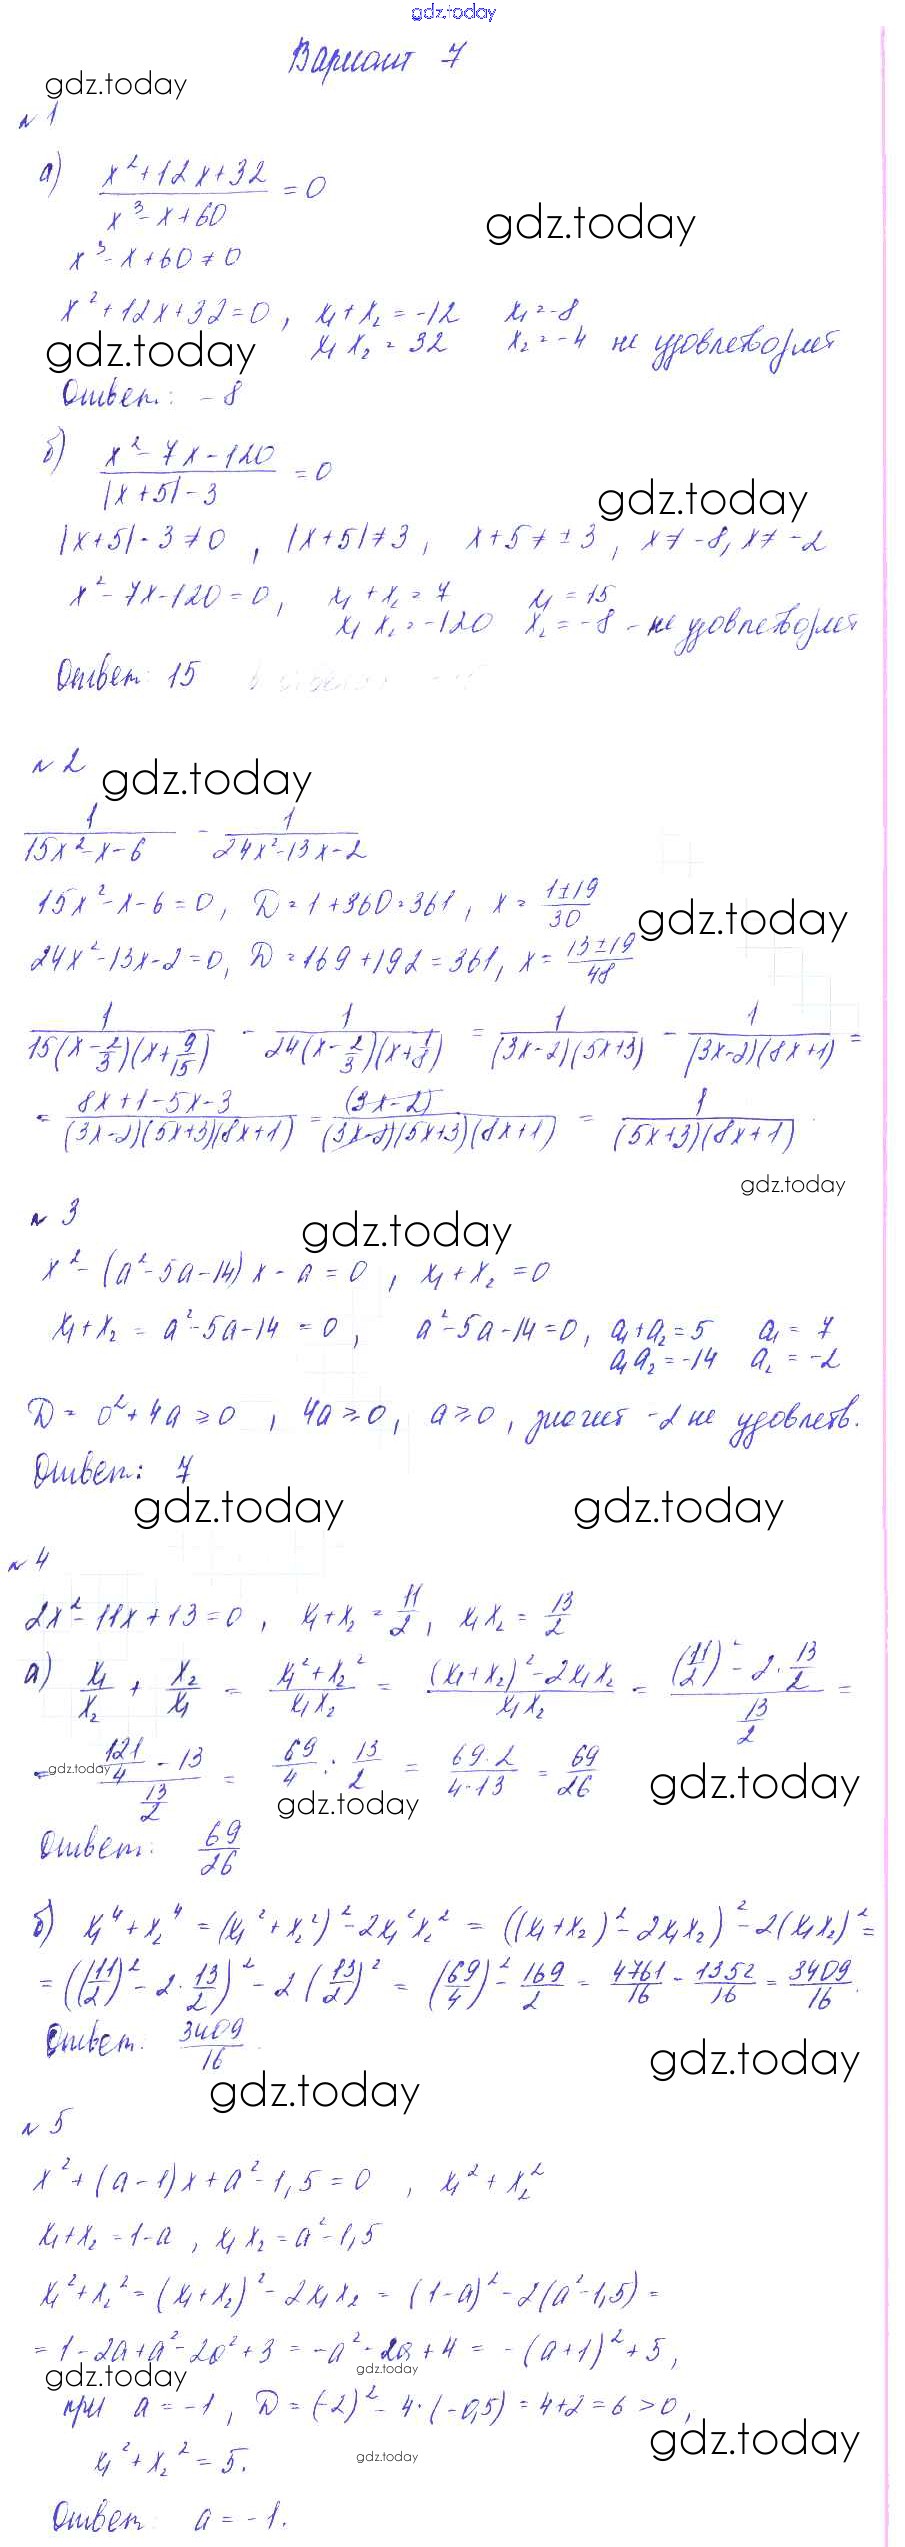 gdz.today
Вариант 7
gdz.today
№ 1
а) (x²+12x+32)/(x³-x+60) = 0
gdz.today
x³-x+60≠0
x²+12x+32=0, x₁+x₂ = -12 x₁=-8
gdz.today x₁x₂ = 32 x₂=-4 не удовлетворяет
Ответ: -8
б) (x²-7x-120)/(|x+5|-3) = 0
gdz.today
|x+5|-3≠0, |x+5|≠3, x+5≠±3, x≠-8, x≠-2
x²-7x-120=0, x₁+x₂=7 x₁=15
x₁x₂=-120 x₂=-8 - не удовлетворяет
Ответ: 15
№ 2 gdz.today
1/(15x²-x-6) - 1/(24x²-13x-2)
15x²-x-6=0, D=1+360=361, x=(1±19)/30
gdz.today
24x²-13x-2=0, D=169+192=361, x=(13±19)/48
1/(15(x-2/3)(x+9/15)) - 1/(24(x-2/3)(x+1/8)) = 1/((3x-2)(5x+3)) - 1/((3x-2)(8x+1)) =
= (8x+1-5x-3)/((3x-2)(5x+3)(8x+1)) = (3x-2)/((3x-2)(5x+3)(8x+1)) = 1/((5x+3)(8x+1)).
gdz.today
№ 3
gdz.today
x²-(a²-5a-14)x-a=0, x₁+x₂=0
x₁+x₂ = a²-5a-14 = 0, a²-5a-14=0, a₁+a₂=5 a₁=7
a₁a₂=-14 a₂=-2
D= 0²+4a≥0, 4a≥0, a≥0, значит -2 не удовлетв.
Ответ: 7
gdz.today gdz.today
№ 4
2x²-11x+13=0, x₁+x₂=11/2, x₁x₂=13/2
а) x₁/x₂ + x₂/x₁ = (x₁²+x₂²)/(x₁x₂) = ((x₁+x₂)²-2x₁x₂)/(x₁x₂) = ((11/2)²-2·13/2)/(13/2) =
= (121/4-13)/(13/2) = 69/4 : 13/2 = (69·2)/(4·13) = 69/26
gdz.today gdz.today gdz.today
Ответ: 69/26
б) x₁⁴+x₂⁴ = (x₁²+x₂²)²-2x₁²x₂² = ((x₁+x₂)²-2x₁x₂)²-2(x₁x₂)² =
= ((11/2)²-2·13/2)²-2(13/2)² = (69/4)²-169/2 = 4761/16-1352/16 = 3409/16.
Ответ: 3409/16.
gdz.today
gdz.today
№ 5
x²+(a-1)x+a²-1,5=0, x₁²+x₂²
x₁+x₂=1-a, x₁x₂=a²-1,5
x₁²+x₂²=(x₁+x₂)²-2x₁x₂ = (1-a)²-2(a²-1,5)=
=1-2a+a²-2a²+3=-a²-2a+4=-(a+1)²+5,
gdz.today gdz.today
при a=-1, D=(-2)²-4·(-0,5)=4+2=6>0,
gdz.today
x₁²+x₂²=5. gdz.today
Ответ: a=-1.